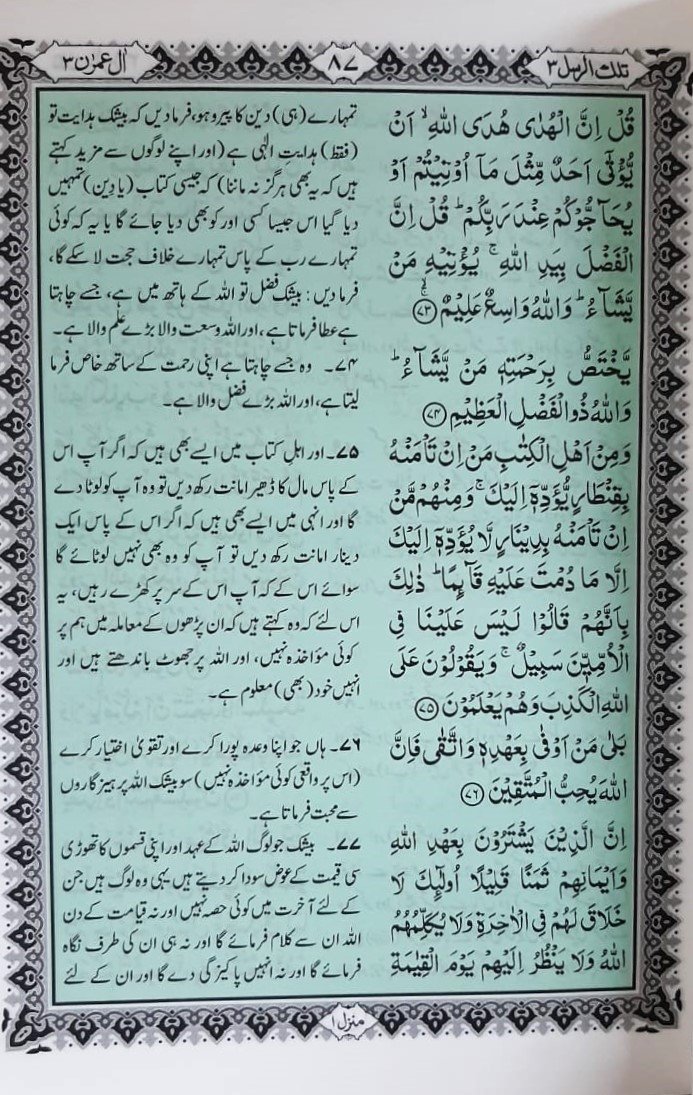 تلك الرسل ٣
٨٧
اٰل عمرٰن ٣
قُلْ اِنَّ الْهُدٰى هُدَى اللّٰهِ ۙ اَنْ
يُّؤْتٰۤى اَحَدٌ مِّثْلَ مَاۤ اُوْتِيْتُمْ اَوْ
يُحَآجُّوْكُمْ عِنْدَ رَبِّكُمْ ؕ قُلْ اِنَّ
الْفَضْلَ بِيَدِ اللّٰهِ ۚ يُؤْتِيْهِ مَنْ
يَّشَآءُ ؕ وَاللّٰهُ وَاسِعٌ عَلِيْمٌ ۚۙ ﴿٧٣﴾
يَّخْتَصُّ بِرَحْمَتِهٖ مَنْ يَّشَآءُ ؕ
وَاللّٰهُ ذُو الْفَضْلِ الْعَظِيْمِ ﴿٧٤﴾
وَمِنْ اَهْلِ الْكِتٰبِ مَنْ اِنْ تَاْمَنْهُ
بِقِنْطَارٍ يُّؤَدِّهٖۤ اِلَيْكَ ۚ وَمِنْهُمْ مَّنْ
اِنْ تَاْمَنْهُ بِدِيْنَارٍ لَّا يُؤَدِّهٖۤ اِلَيْكَ
اِلَّا مَا دُمْتَ عَلَيْهِ قَآئِمًا ؕ ذٰلِكَ
بِاَنَّهُمْ قَالُوْا لَيْسَ عَلَيْنَا فِى
الْاُمِّيّٖنَ سَبِيْلٌ ۚ وَيَقُوْلُوْنَ عَلَى
اللّٰهِ الْكَذِبَ وَهُمْ يَعْلَمُوْنَ ﴿٧٥﴾
بَلٰى مَنْ اَوْفٰى بِعَهْدِهٖ وَاتَّقٰى فَاِنَّ
اللّٰهَ يُحِبُّ الْمُتَّقِيْنَ ﴿٧٦﴾
اِنَّ الَّذِيْنَ يَشْتَرُوْنَ بِعَهْدِ اللّٰهِ
وَاَيْمَانِهِمْ ثَمَنًا قَلِيْلًا اُولٰٓئِكَ لَا
خَلَاقَ لَهُمْ فِى الْاٰخِرَةِ وَلَا يُكَلِّمُهُمُ
اللّٰهُ وَلَا يَنْظُرُ اِلَيْهِمْ يَوْمَ الْقِيٰمَةِ
تمہارے (ہی) دین کا پیرو ہو، فرما دیں کہ بیشک ہدایت تو
(فقط) ہدایتِ الٰہی ہے (اور اپنے لوگوں سے مزید کہتے
ہیں کہ یہ بھی ہرگز نہ ماننا) کہ جیسی کتاب (یا دِین) تمہیں
دیا گیا اس جیسا کسی اور کو بھی دیا جائے گا یا یہ کہ کوئی
تمہارے رب کے پاس تمہارے خلاف حجت لا سکے گا،
فرما دیں: بیشک فضل تو اللہ کے ہاتھ میں ہے، جسے چاہتا
ہے عطا فرماتا ہے، اور اللہ وسعت والا بڑے علم والا ہے۔
۷۴۔ وہ جسے چاہتا ہے اپنی رحمت کے ساتھ خاص فرما
لیتا ہے، اور اللہ بڑے فضل والا ہے۔
۷۵۔ اور اہلِ کتاب میں ایسے بھی ہیں کہ اگر آپ اس
کے پاس مال کا ڈھیر امانت رکھ دیں تو وہ آپ کو لوٹا دے
گا اور انہی میں ایسے بھی ہیں کہ اگر اس کے پاس ایک
دینار امانت رکھ دیں تو آپ کو وہ بھی نہیں لوٹائے گا
سوائے اس کے کہ آپ اس کے سر پر کھڑے رہیں، یہ
اس لئے کہ وہ کہتے ہیں کہ ان پڑھوں کے معاملہ میں ہم پر
کوئی مؤاخذہ نہیں، اور اللہ پر جھوٹ باندھتے ہیں اور
انہیں خود (بھی) معلوم ہے۔
۷۶۔ ہاں جو اپنا وعدہ پورا کرے اور تقویٰ اختیار کرے
(اس پر واقعی کوئی مؤاخذہ نہیں) سو بیشک اللہ پرہیزگاروں
سے محبت فرماتا ہے۔
۷۷۔ بیشک جو لوگ اللہ کے عہد اور اپنی قسموں کا تھوڑی
سی قیمت کے عوض سودا کر دیتے ہیں یہی وہ لوگ ہیں جن
کے لئے آخرت میں کوئی حصہ نہیں اور نہ قیامت کے دن
اللہ ان سے کلام فرمائے گا اور نہ ہی ان کی طرف نگاہ
فرمائے گا اور نہ انہیں پاکیزگی دے گا اور ان کے لئے
منزل ١